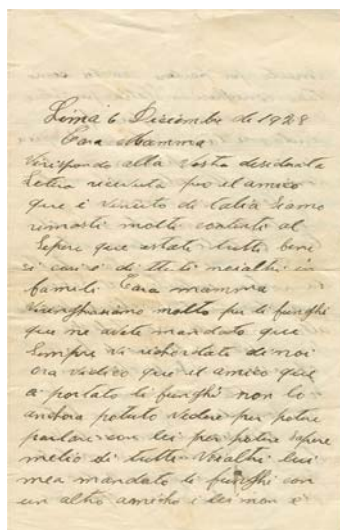 Lima 6 Diciembre de 1928
Cara Mamma
Virispondo alla Vostra desiderata
Letera ricevuta por el amico
que è venuto de talia siamo
rimasti molto contenti al
Sepere que estate tutti bene
si cosi è di tutti noialtri in
famili. Cara mamma
Viringrasiamo molto per li funghi
que ne avete mandato que
Sempre Vi ricordate de noi
ora Vedico que el amico que
a portato le funghi non lo
anchora potuto Vedere per potere
parlare con lui per potere sapere
melio di tutti Voialtri lui
mea mandato li funghi con
un altro amicho i lei non è